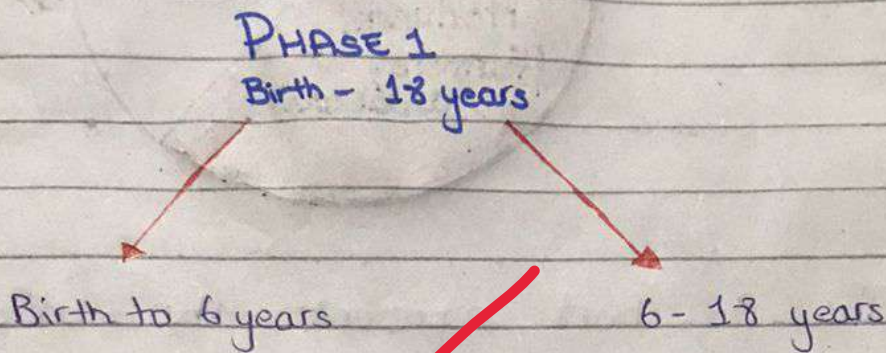 PHASE 1
Birth - 18 years
Birth to 6 years
6 - 18 years